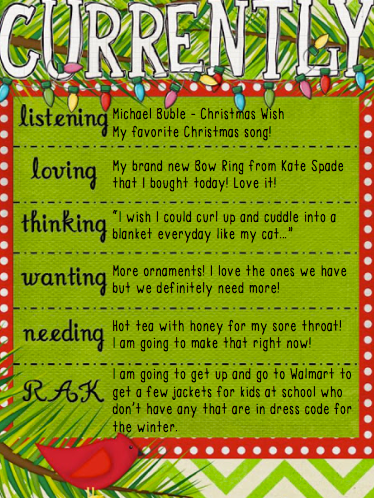 CURRENTLY
listening
Michael Buble - Christmas Wish
My favorite Christmas song!
loving
My brand new Bow Ring from Kate Spade
that I bought today! Love it!
thinking
"I wish I could curl up and cuddle into a
blanket everyday like my cat..."
wanting
More ornaments! I love the ones we have
but we definitely need more!
needing
Hot tea with honey for my sore throat!
I am going to make that right now!
RAK
I am going to get up and go to Walmart to
get a few jackets for kids at school who
don't have any that are in dress code for
the winter.